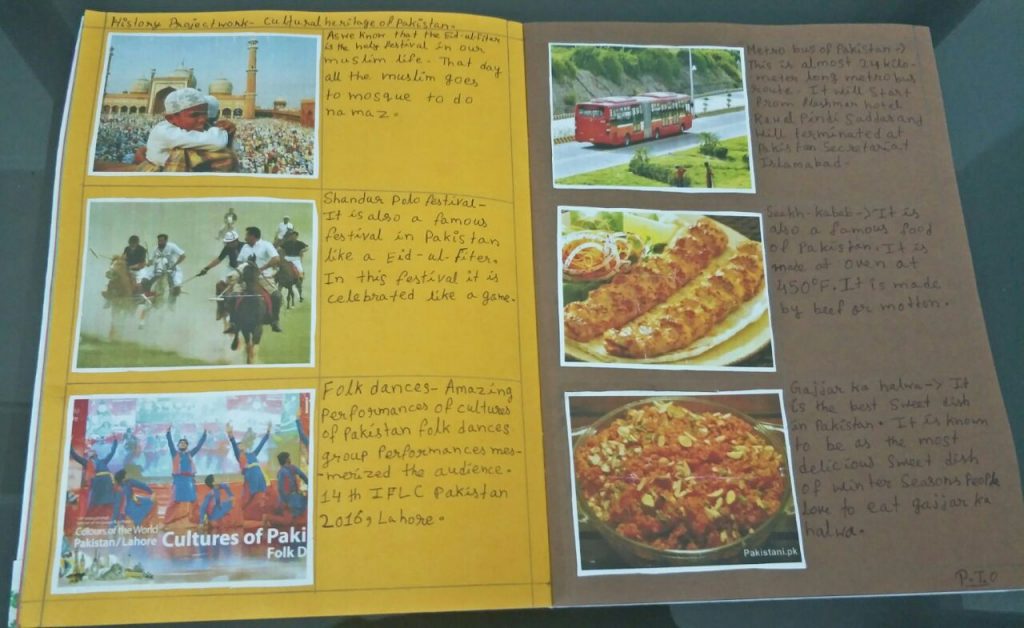 History Project work- Cultural heritage of Pakistan.
As we know that the Eid-ul-fiter
is the holy festival in our
muslim life. That day
all the muslim goes
to mosque to do
namaz.
Shandur Polo festival-
It is also a famous
festival in Pakistan
like a Eid-ul-fiter.
In this festival it is
celebrated like a game.
Folk dances- Amazing
Performances of cultures
of Pakistan folk dances
group Performances mes-
merized the audience.
14th IFLC Pakistan
2016, Lahore.
Colours of the World
Pakistan/Lahore
Cultures of Paki
Folk D
Metro bus of Pakistan->
This is almost 24 kilo-
meter long metro bus
route. It will start
from Flashman hotel
Rawal Pindi Saddar and
will terminated at
Pakistan Secretariat
Islamabad.
Seekh-kabab-> It is
also a famous food
of Pakistan. It is
made at oven at
450°F. It is made
by beef or motton.
Gajjar ka halwa-> It
is the best sweet dish
in Pakistan. It is known
to be as the most
delicious sweet dish
of winter seasons People
love to eat gajjar ka
halwa.
Pakistani.pk
P.T.O